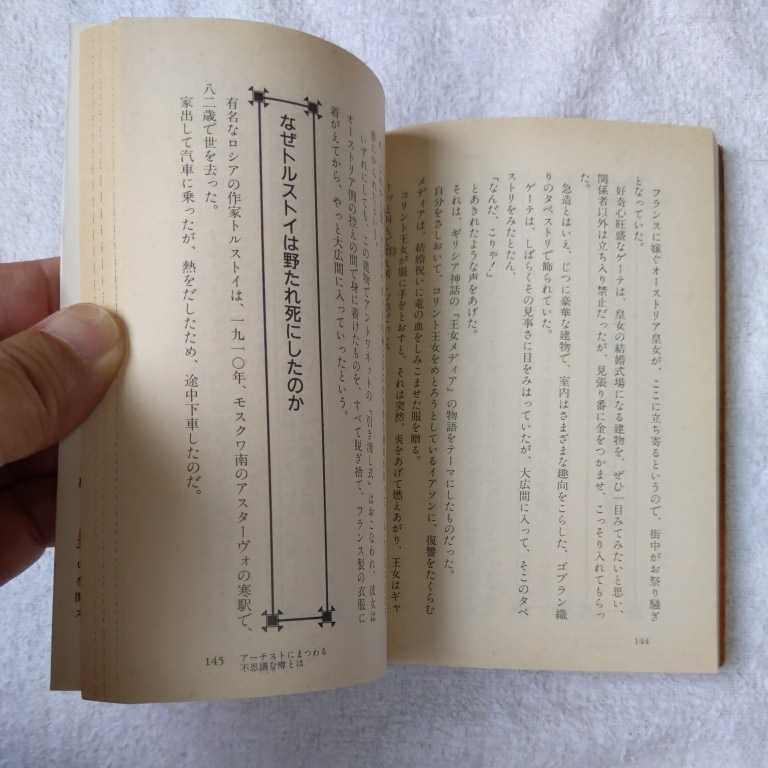 フランスに嫁ぐオーストリア皇女が、ここに立ち寄るというので、街中がお祭り騒ぎ
となっていた。
好奇心旺盛なゲーテは、皇女の結婚式場になる建物を、ぜひ一目みてみたいと思い、
関係者以外は立ち入り禁止だったが、見張り番に金をつかませ、こっそり入れてもらっ
た。
急造とはいえ、じつに豪華な建物で、室内はさまざまな趣向をこらした、ゴブラン織
りのタペストリで飾られていた。
ゲーテは、しばらくその見事さに目をみはっていたが、大広間に入って、そこのタペ
ストリをみたとたん、
「なんだ、こりゃ!」
とあきれたような声をあげた。
それは、ギリシア神話の『王女メディア』の物語をテーマにしたものだった。
自分をさしおいて、コリント王女をめとろうとしているイアソンに、復讐をたくらむ
メディアは、結婚祝いに竜の血をしみこませた服を贈る。
コリント王女が服に手をとおすと、それは突然、炎をあげて燃えあがり、王女はギャ
144
いずれにしても、この建物でアントワネットの「引き渡し式」はおこなわれ、彼女は
オーストリア側の控えの間で身に着けたものを、すべて脱ぎ捨て、フランス製の衣服に
着がえてから、やっと大広間に入っていったという。
なぜトルストイは野たれ死にしたのか
有名なロシアの作家トルストイは、一九一〇年、モスクワ南のアスターヴォの寒駅で、
八二歳で世を去った。
家出して汽車に乗ったが、熱をだしたため、途中下車したのだ。
145
アーチストにまつわる
不思議な噂とは